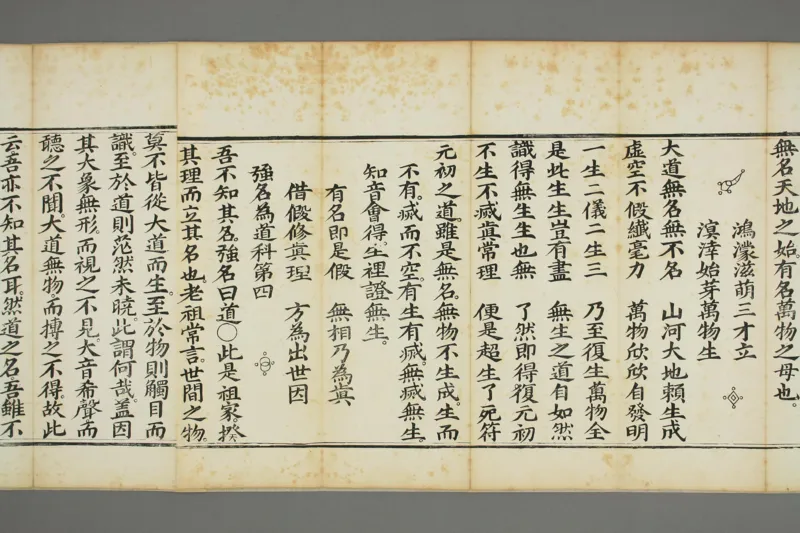 無名天地之始。有名萬物之母也。
鴻濛滋萌三才立
溟涬始芽萬物生
大道無名無不名 山河大地賴生成
虛空不假纖毫力 萬物欣欣自發明
一生二儀二生三 乃至復生萬物全
是此生生豈有盡 無生之道自如然
識得無生生也無 了然即得復元初
不生不滅眞常理 便是超生了死符
元初之道。雖是無名。無物不生成。生而
不有。滅而不空。有生有滅。無滅無生。
知音會得。生裡證無生。
有名即是假 無相乃為眞
借假修眞理 方為出世因
強名為道科第四
吾不知其名。強名曰道〇此是祖家揆
其理而立其名也。老祖常言。世間之物。
莫不皆從大道而生。至於物則觸目而
識。至於道則茫然未曉。此謂何哉。蓋因
其大象無形。而視之不見。大音希聲。而
聽之不聞。大道無物。而搏之不得。故此
云吾亦不知其名耳。然道之名。吾雖不